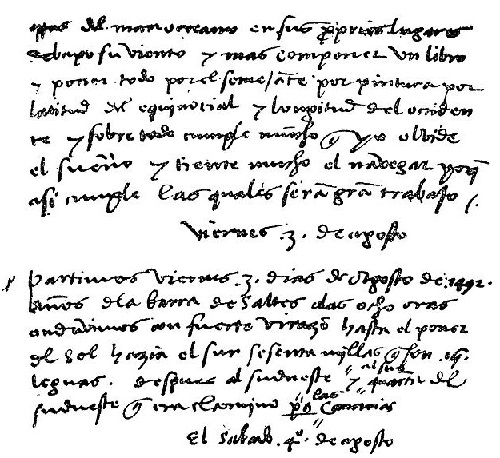 del mar oceano en sus proprios lugares
debaxo su viento y mas componer un libro
y poner todo por el semejante por pintura por
latitud del equinocial y longitud del ociden
te y sobre todo cumple mucho q yo olvide
el sueño y tiente mucho el navegar porq
asi cumple las quales seran gran trabajo
viernes .3. de agosto
partimos viernes .3. dias de Agosto de .1492.
años dela barra de Saltes alas ocho oras
anduvimos con fuerte virazo hasta el poner
del Sol hazia el sur sesenta millas q son .15.
leguas. despues al sudueste y al sur quarta del
sudueste q era el camino pa las Canarias
El Sabado .4º. de agosto